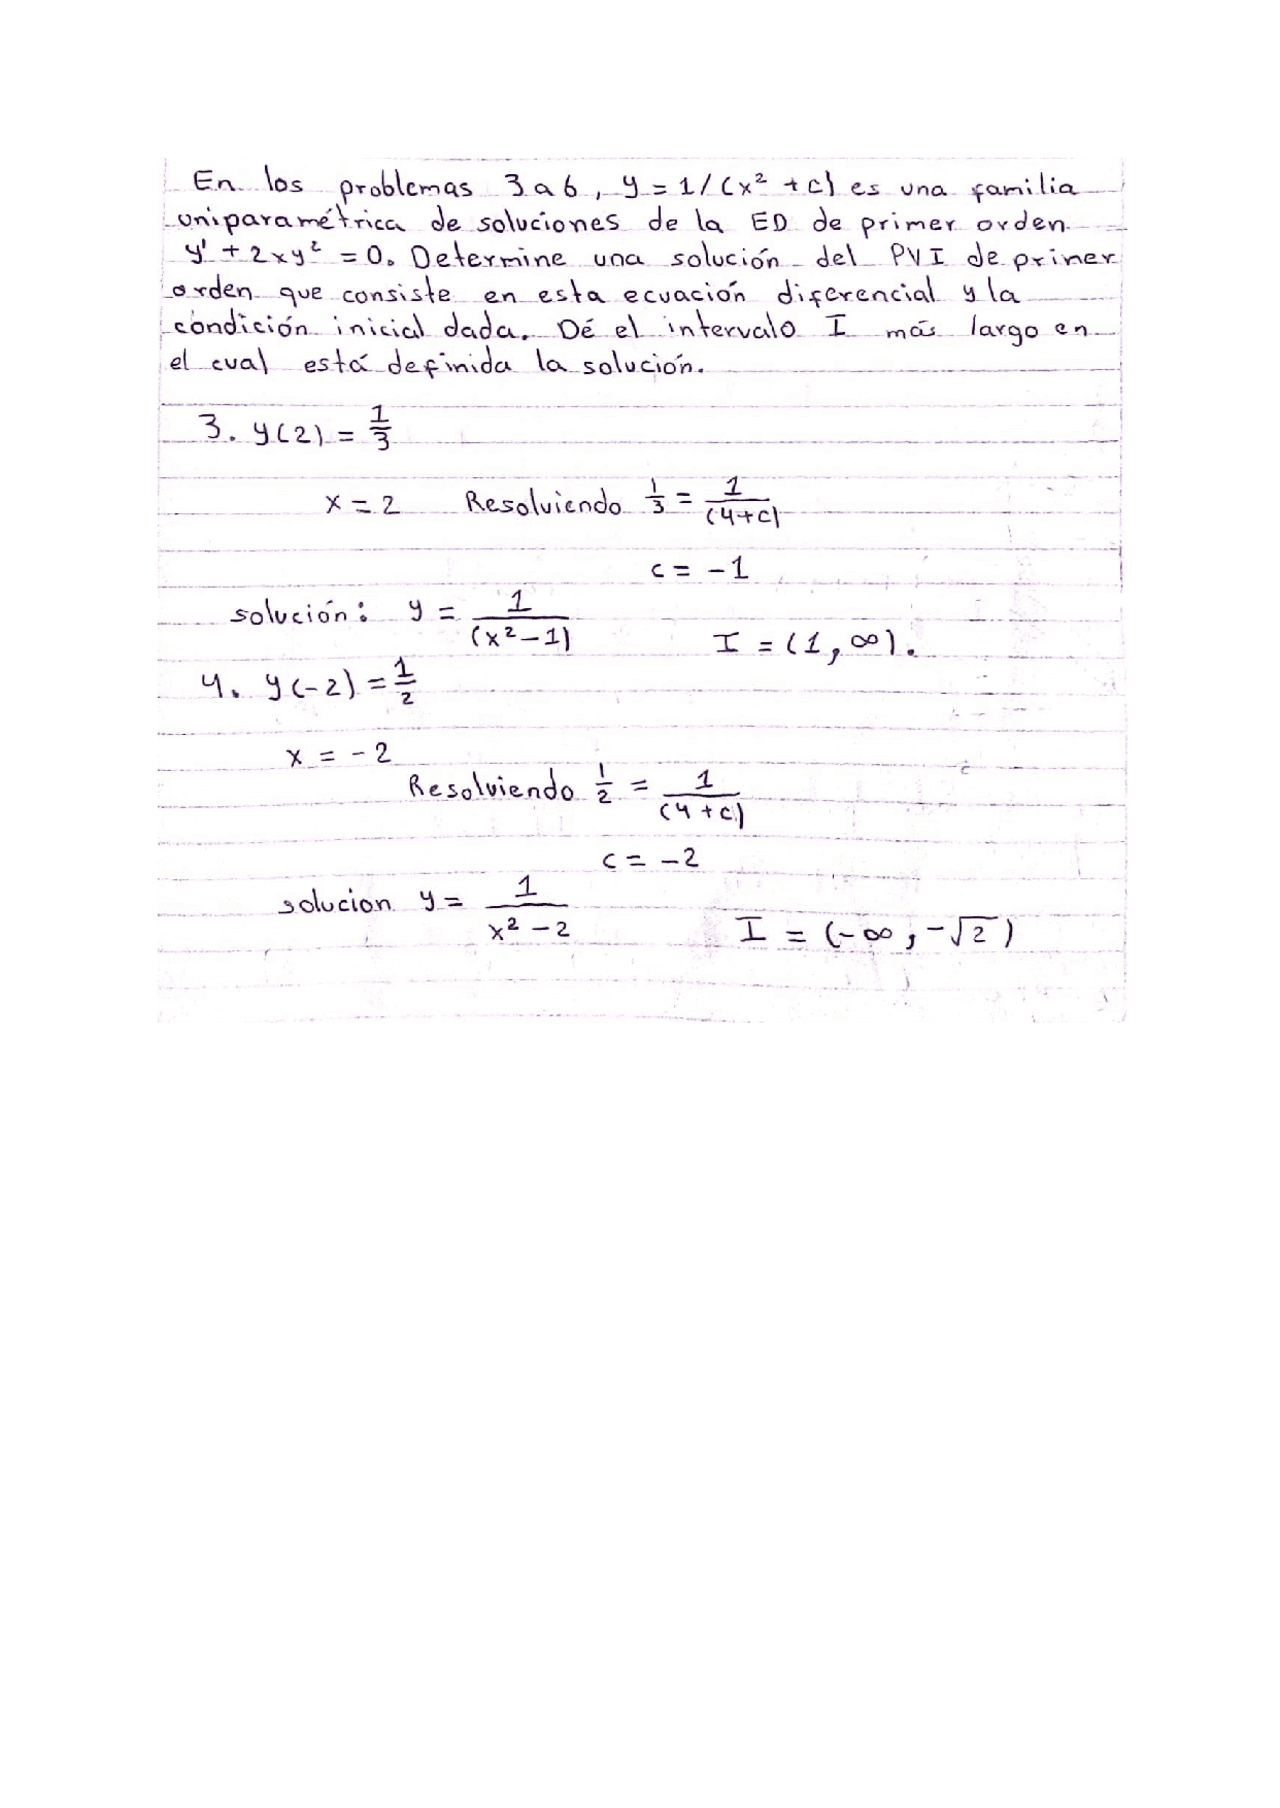 En los problemas 3 a 6, y = 1/(x² + c) es una familia
uniparamétrica de soluciones de la ED de primer orden
y' + 2xy² = 0. Determine una solución del PVI de priner
orden que consiste en esta ecuación diferencial y la
condición inicial dada. Dé el intervalo I más largo en
el cual está definida la solución.
3. y(2) = 1/3
x = 2 Resolviendo 1/3 = 1/(4+c)
c = -1
solución: y = 1/(x²-1) I = (1, ∞).
4. y(-2) = 1/2
x = -2
Resolviendo 1/2 = 1/(4+c)
c = -2
solucion y = 1/x²-2 I = (-∞, -√2)